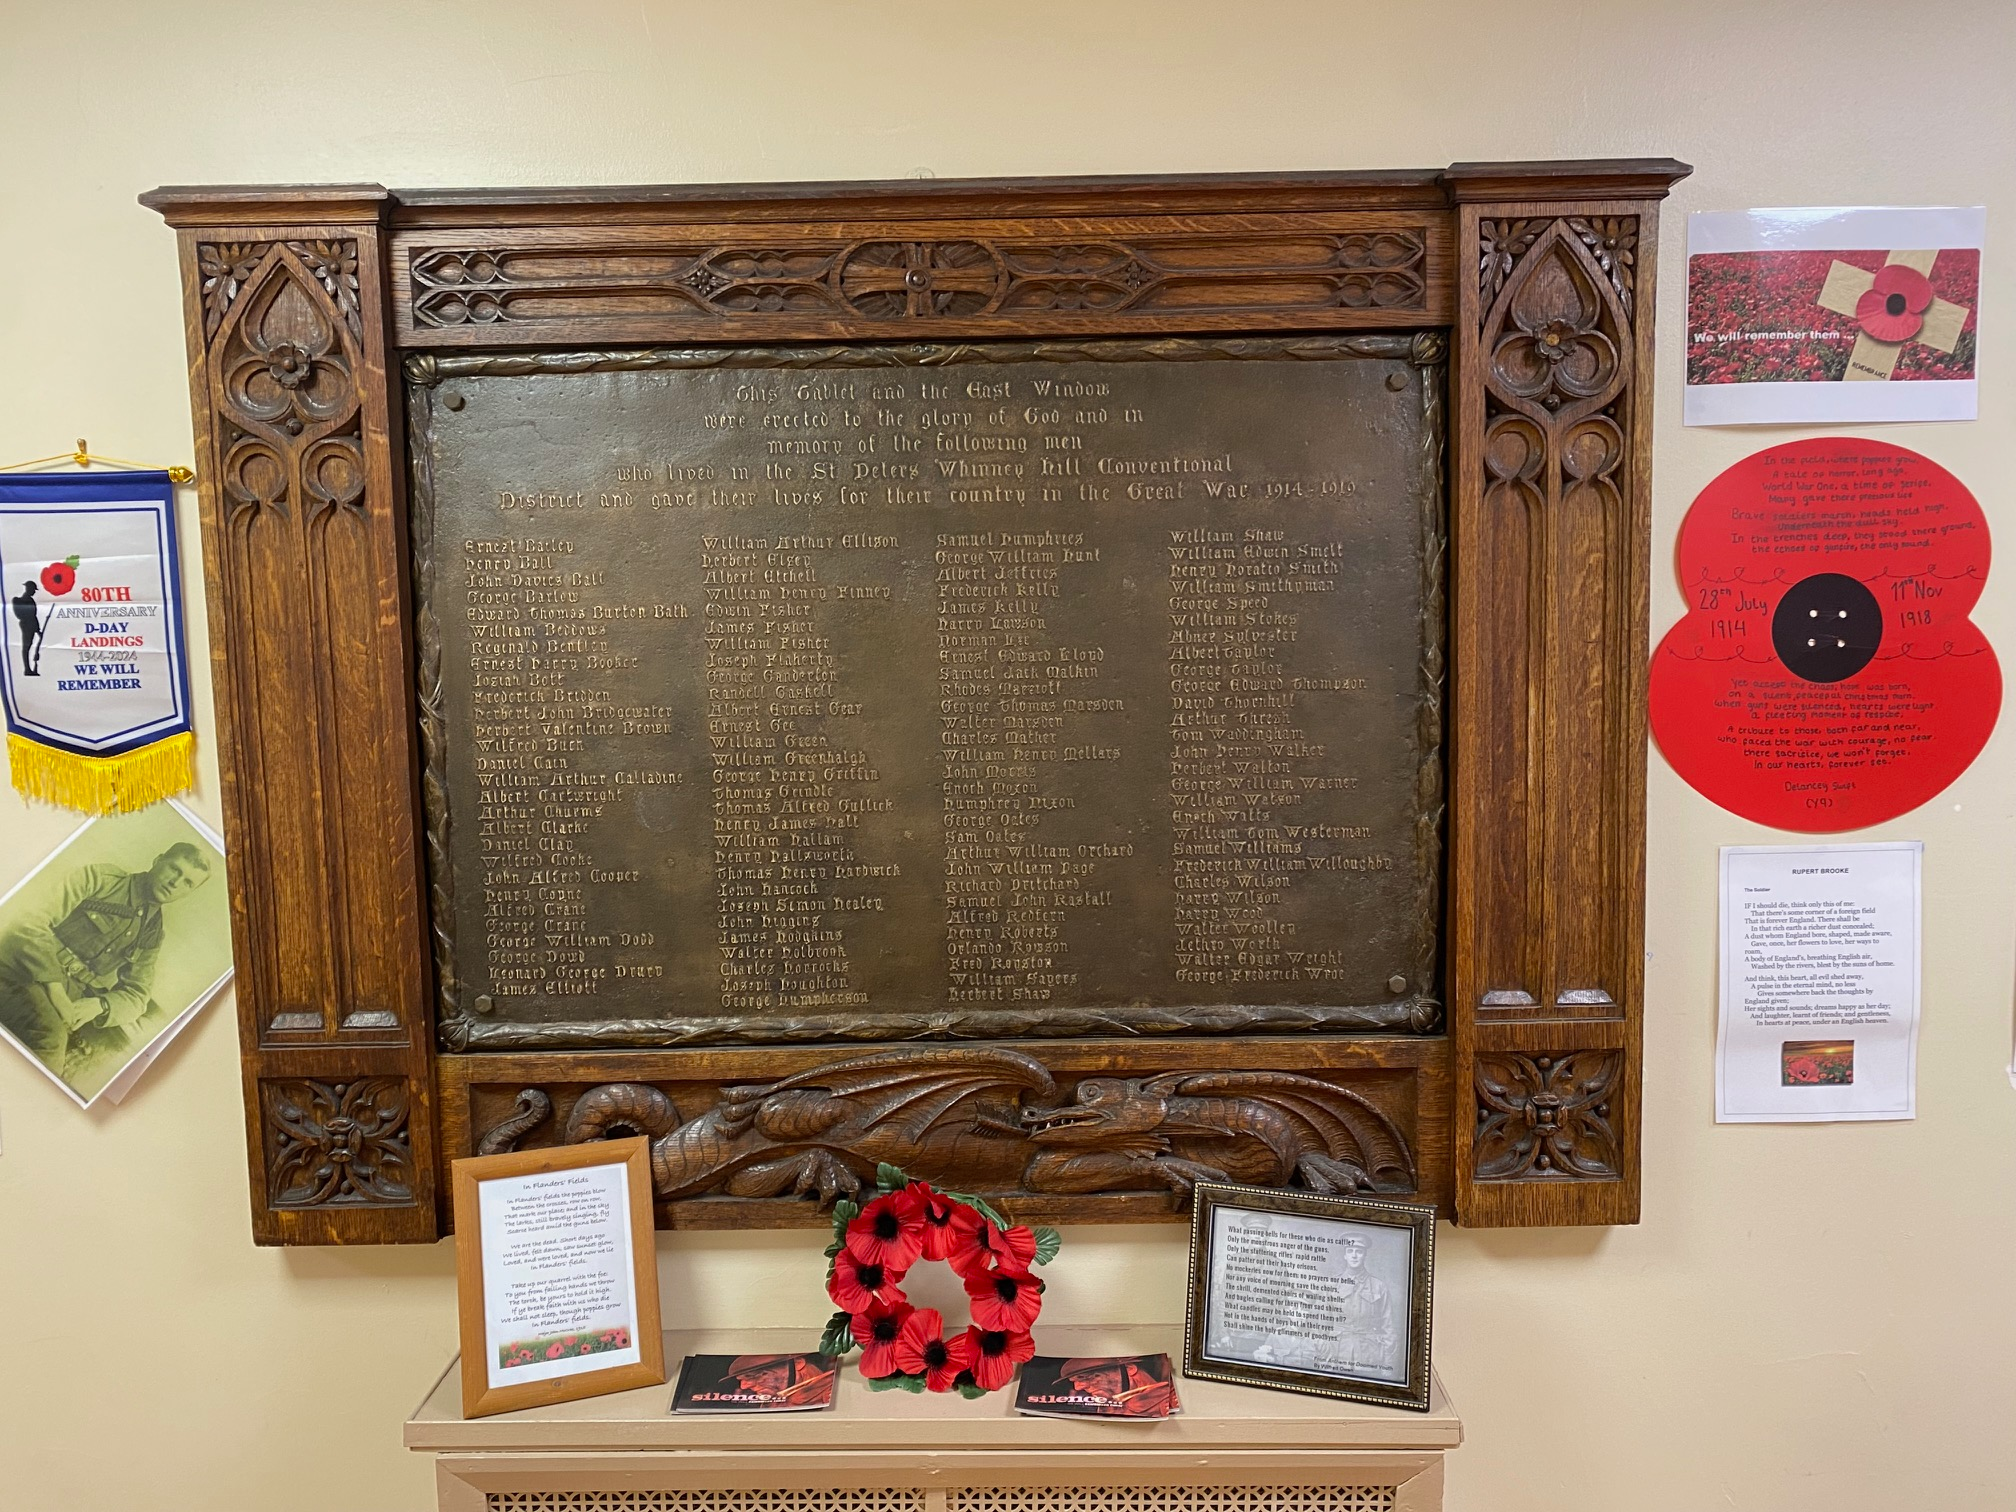 This Tablet and the East Window
were erected to the glory of God and in
memory of the following men
who lived in the St Peters Whinney Hill Conventional
District and gave their lives for their country in the Great War 1914-1919
Ernest Bailey
Henry Ball
John Davies Ball
George Barlow
Edward Thomas Burton Bath
William Beddows
Reginald Bentley
Ernest Harry Booker
Josiah Bott
Frederick Bridden
Herbert John Bridgewater
Herbert Valentine Brown
Wilfred Buck
Daniel Cain
William Arthur Calladine
Albert Cartwright
Arthur Churms
Albert Clarke
Daniel Clay
Wilfred Cooke
John Alfred Cooper
Henry Coyne
Alfred Crane
George Crane
George William Dodd
George Dowd
Leonard George Drury
James Elliott
William Arthur Ellison
Herbert Elsey
Albert Etchell
William Henry Finney
Edwin Fisher
James Fisher
William Fisher
Joseph Flaherty
George Ganderton
Randell Gaskell
Albert Ernest Gear
Ernest Gee
William Green
William Greenhalgh
George Henry Griffin
Thomas Grindle
Thomas Alfred Gullick
Henry James Hall
William Hallam
Henry Hallsworth
Thomas Henry Hardwick
John Hancock
Joseph Simon Healey
John Higgins
James Hodgkins
Walter Holbrook
Charles Horrocks
Joseph Houghton
George Humpherson
Samuel Humphries
George William Hunt
Albert Jeffries
Frederick Kelly
James Kelly
Harry Lawson
Norman Lee
Ernest Edward Lloyd
Samuel Jack Malkin
Rhodes Marriott
George Thomas Marsden
Walter Marsden
Charles Mather
William Henry Mellars
John Morris
Enoch Moxon
Humphrey Nixon
George Oates
Sam Oates
Arthur William Orchard
John William Page
Richard Pritchard
Samuel John Rastall
Alfred Redfern
Henry Roberts
Orlando Rowson
Fred Royston
William Sayers
Herbert Shaw
William Shaw
William Edwin Smelt
Henry Horatio Smith
William Smithyman
George Speed
William Stokes
Abner Sylvester
Albert Taylor
George Taylor
George Edward Thompson
David Thornhill
Arthur Thresh
Tom Waddingham
John Henry Walker
Herbert Walton
George William Warner
William Watson
Enoch Watts
William Tom Westerman
Samuel Williams
Frederick William Willoughby
Charles Wilson
Harry Wilson
Harry Wood
Walter Woolley
Jethro Worth
Walter Edgar Wright
George Frederick Wroe
80TH
ANNIVERSARY
D-DAY
LANDINGS
1944-2024
WE WILL
REMEMBER
We will remember them ...
REMEMBRANCE
In the field, where poppies grow,
A tale of honor, long ago,
World War One, a time of strife,
Many gave there precious life
Brave soldiers march, heads held high,
Underneath the dull sky.
In the trenches deep, they stood there ground,
the echoes of gunfire, the only sound.
28th July
1914
11th Nov
1918
Yet accept the chaos, hope was born,
on a silent, peaceful christmas morn.
When guns were silenced, hearts were light
a fleeting moment of respite.
A tribute to those, both far and near,
who faced the war with courage, no fear
there sacrifice, we won't forget,
In our hearts, forever set.
Delancey Swift
(Y9)
RUPERT BROOKE
The Soldier
IF I should die, think only this of me:
That there's some corner of a foreign field
That is forever England. There shall be
In that rich earth a richer dust concealed;
A dust whom England bore, shaped, made aware,
Gave, once, her flowers to love, her ways to
roam,
A body of England's, breathing English air,
Washed by the rivers, blest by the suns of home.
And think, this heart, all evil shed away,
A pulse in the eternal mind, no less
Gives somewhere back the thoughts by
England given;
Her sights and sounds; dreams happy as her day;
And laughter, learnt of friends; and gentleness,
In hearts at peace, under an English heaven.
In Flanders' Fields
In Flanders' fields the poppies blow
Between the crosses, row on row,
That mark our place; and in the sky
The larks, still bravely singing, fly
Scarce heard amid the guns below.
We are the dead. Short days ago
We lived, felt dawn, saw sunset glow,
Loved, and were loved, and now we lie
In Flanders' fields.
Take up our quarrel with the foe:
To you from failing hands we throw
The torch, be yours to hold it high.
If ye break faith with us who die
We shall not sleep, though poppies grow
In Flanders' fields.
silence...
silence...
What passing-bells for these who die as cattle?
Only the monstrous anger of the guns.
Only the stuttering rifles' rapid rattle
Can patter out their hasty orisons.
No mockeries now for them; no prayers nor bells;
Nor any voice of mourning save the choirs,
The shrill, demented choirs of wailing shells;
And bugles calling for them from sad shires.
What candles may be held to speed them all?
Not in the hands of boys but in their eyes
Shall shine the holy glimmers of goodbyes.
From Anthem for Doomed Youth
By Wilfred Owen